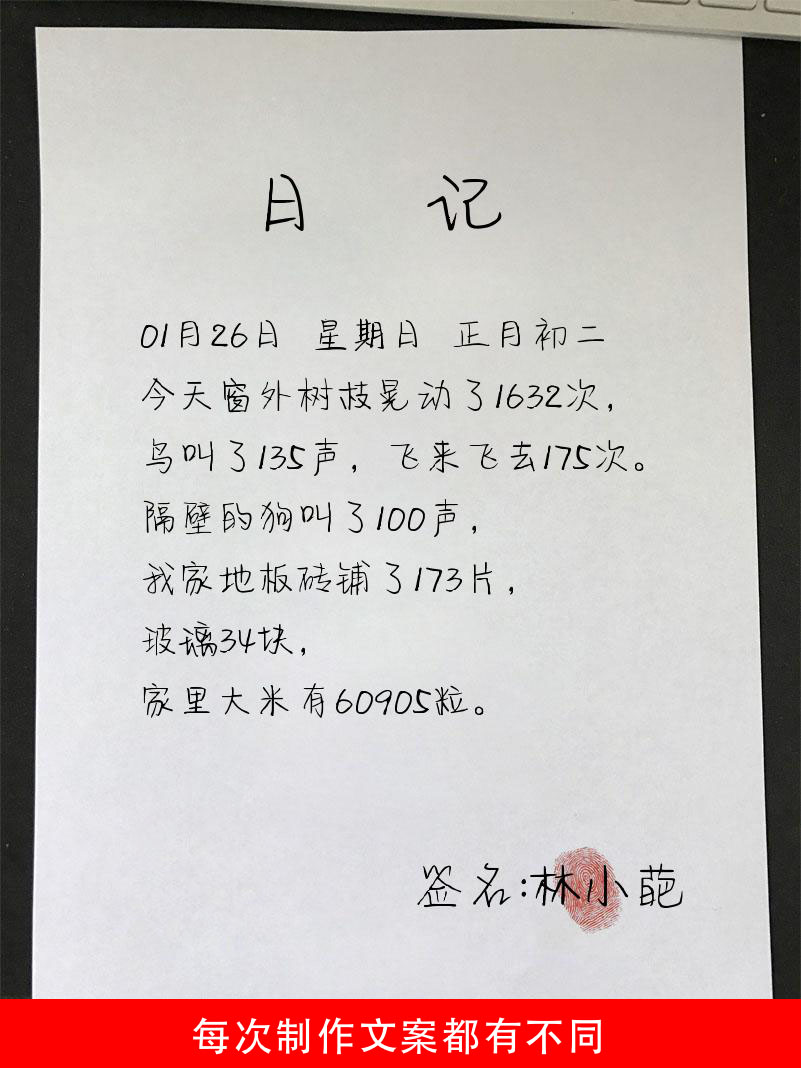 日 记
01月26日 星期日 正月初二
今天窗外树枝晃动了1632次，
鸟叫了135声，飞来飞去175次。
隔壁的狗叫了100声，
我家地板砖铺了173片，
玻璃34块，
家里大米有60905粒。
签名:林小葩
每次制作文案都有不同